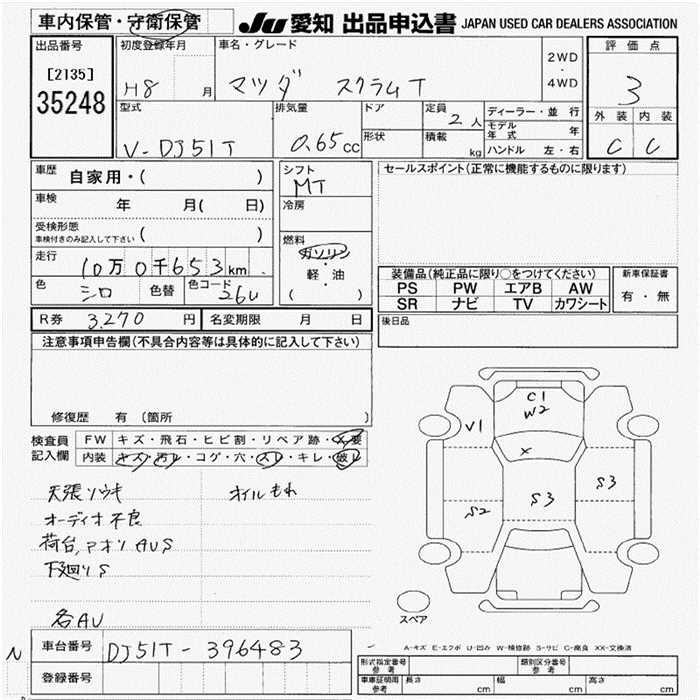 車内保管・守衛保管
JU 愛知 出品申込書 JAPAN USED CAR DEALERS ASSOCIATION
出品番号
[2135]
35248
初度登録年月
H8 月
車名・グレード
マツダ スクラムT
2WD
・
4WD
評価点
3
外装 内装
C C
型式
V-DJ51T
排気量
0.65cc
ドア
形状
定員
2人
積載
kg
ディーラー・並行
モデル年式 年
ハンドル 左・右
車歴
自家用・( )
車検
年 月( 日)
受検形態
車検付きのみ記入して下さい ( )
走行
10万0千653km
色
シロ
色替
色コード
26U
シフト
MT
冷房
燃料
ガソリン
・
軽・油
( )
セールスポイント(正常に機能するものに限ります)
装備品(純正品に限り○をつけてください)
PS PW エアB AW
SR ナビ TV カワシート
新車保証書
有・無
R券 3,270 円
名変期限 月 日
後日品
注意事項申告欄(不具合内容等は具体的に記入して下さい)
修復歴 有 (箇所 )
検査員
記入欄
FW キズ・飛石・ヒビ割・リペア跡・X要
内装 キズ・汚レ・コゲ・穴・スレ・キレ・破レ
天張ソウキ
オーディオ不良
荷台,アオリAUS
下廻りS
各AU
オイルもれ
C1
W2
V1
X
S3
S3
S2
スペア
A-キズ E-エクボ U-凹み W-補修跡 S-サビ C-腐食 XX-交換済
N
車台番号 DJ51T-396483
登録番号
形式指定番号
参考
類別区分番号
参考
車庫証明用
参考
長さ cm
幅 cm
高さ cm